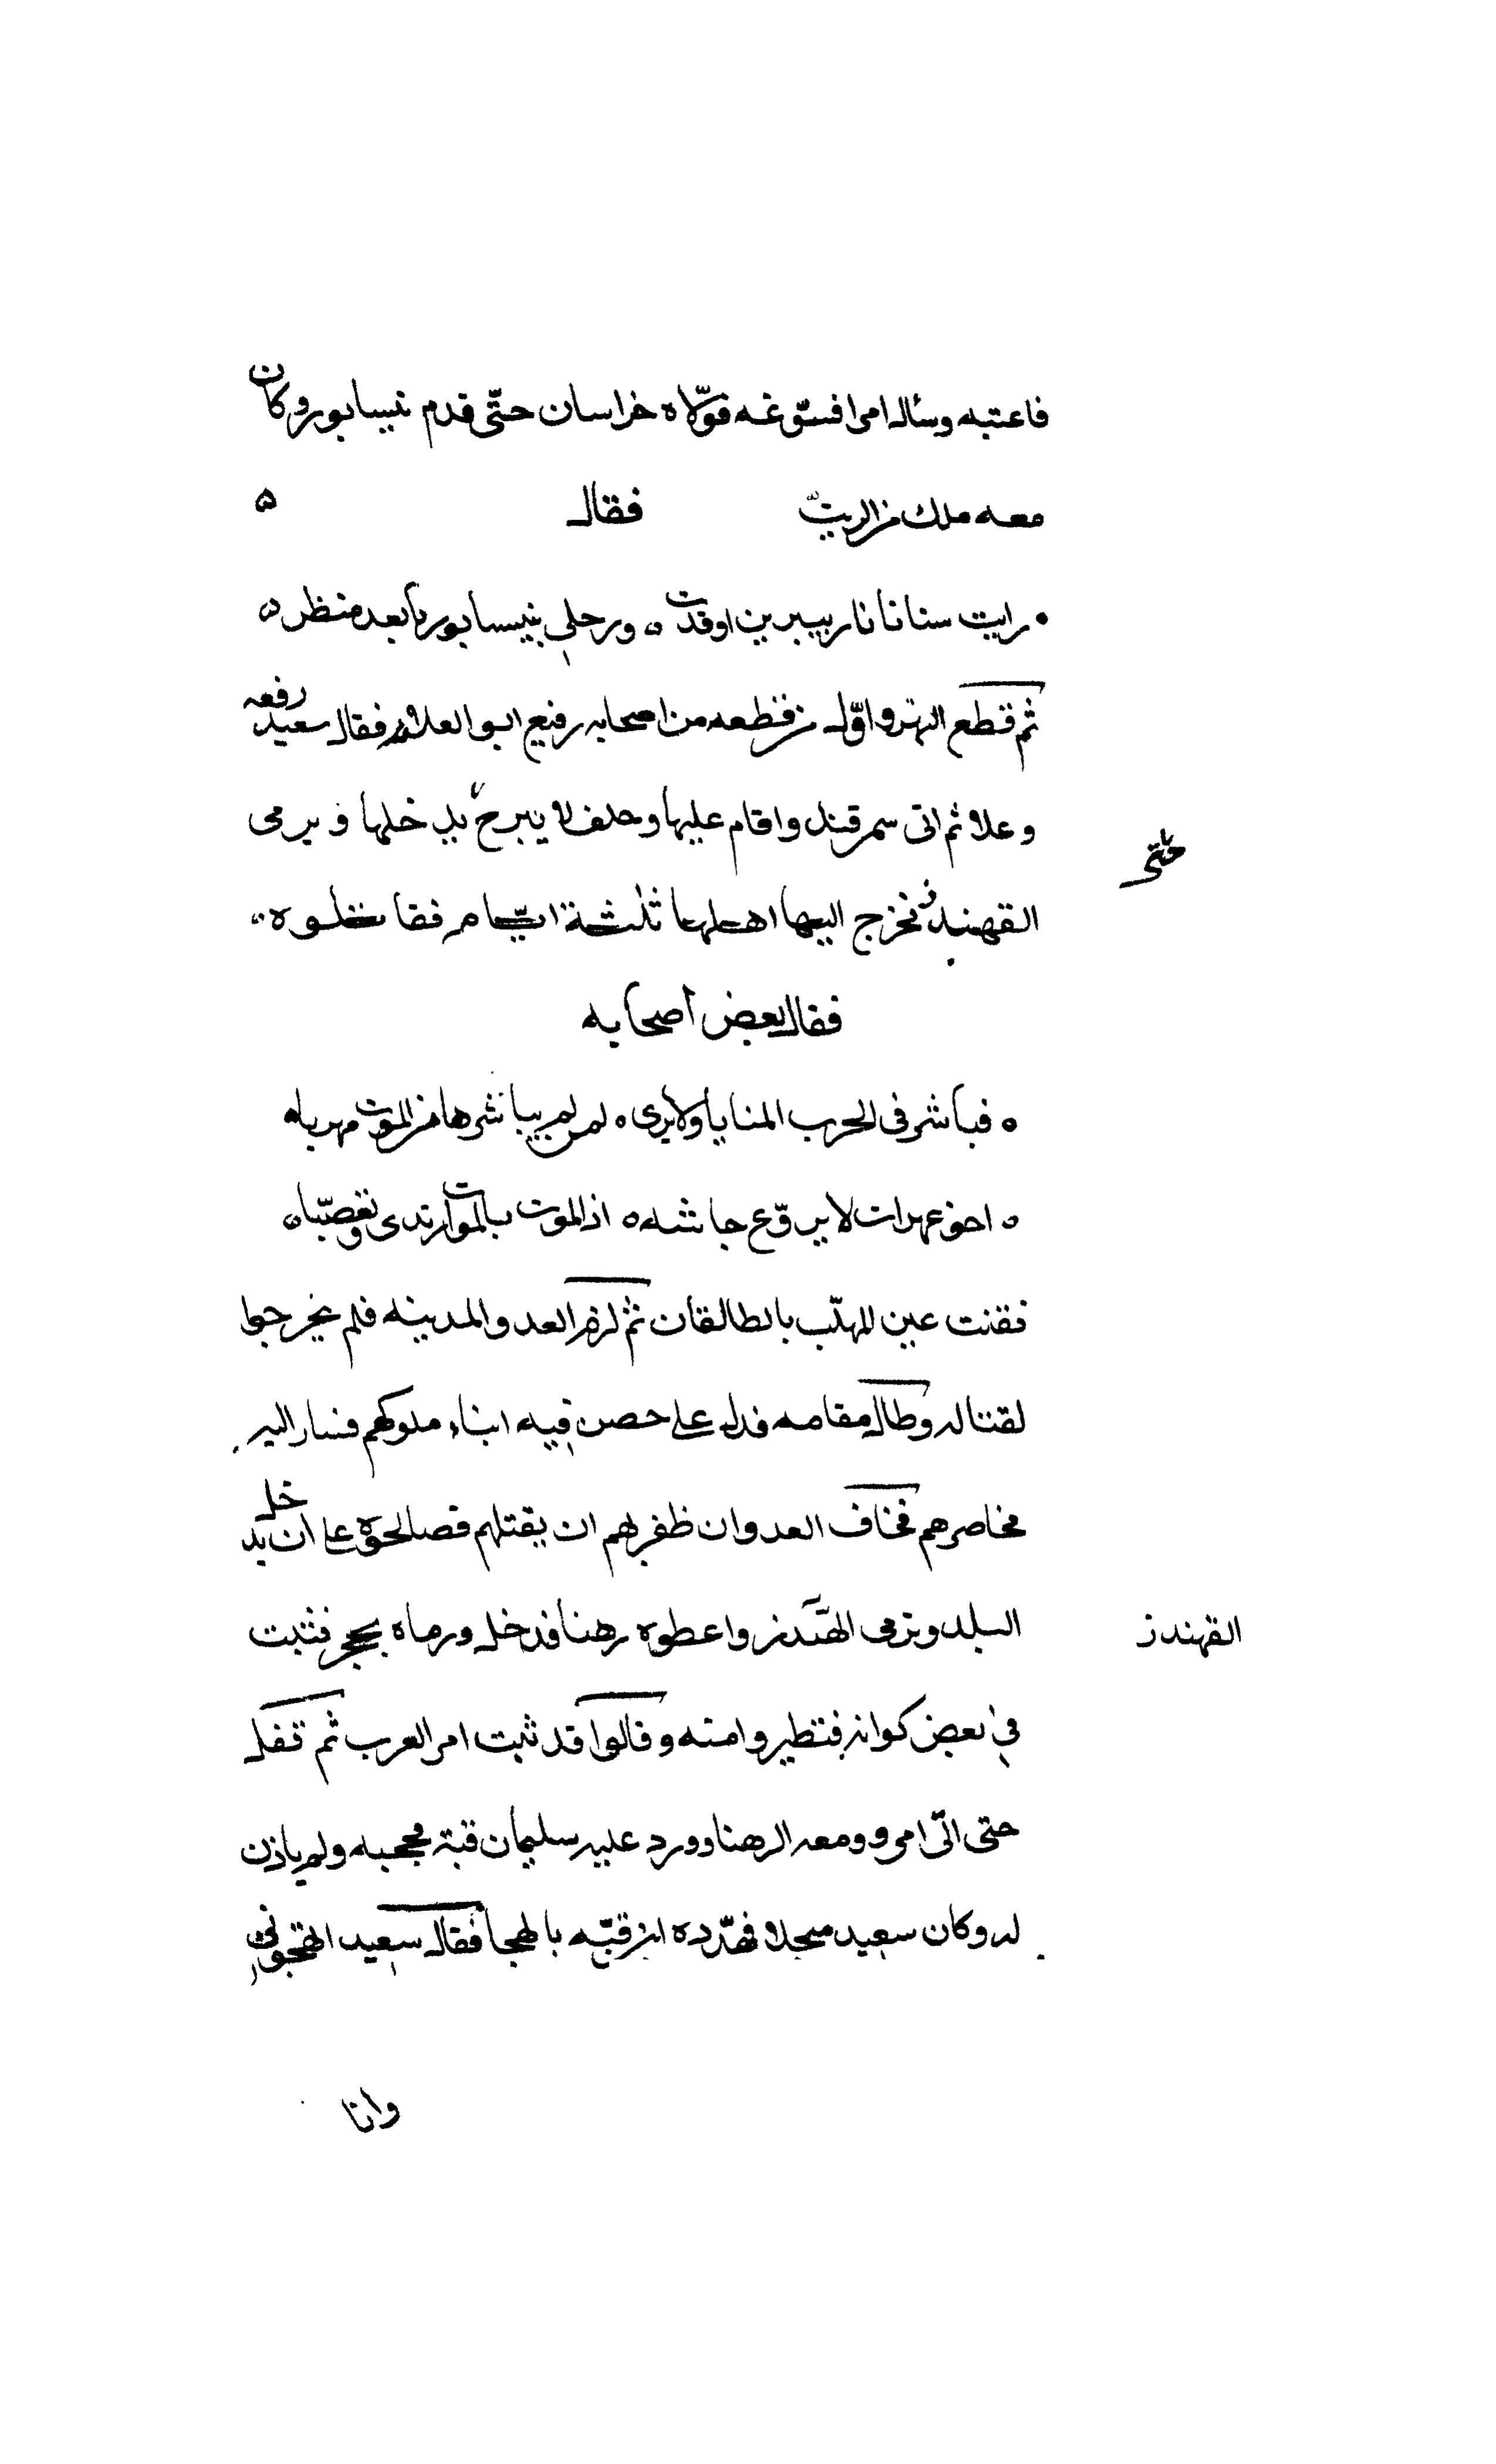 فاعتبه وساله امرا فسوغه فولاه خراسان حتى قدم نيسابور وكان
معه ملك من الريب فقال
رايت سنانا نار بيبرين اوقدت ورحلي بنيسابور يا بعد منظر
ثم قطع النهر واول من قطعه من اصحابه رفيع ابو العلاء فقال سعيد رفعه
وعلا ثم اتى سمرقند واقام عليها وحلف لا يبرح يدخلها ويرمى
حتى
القهندز فخرج اليها اهلها ثلثة ايام فقاتلوه
فقال بعض اصحابه
فباشر في الحرب المنايا ولا يرى لمن لم يباشرها من الموت مهربا
اخو غمرات لا يروع جاشه اذا الموت بالموت ارتدى وتعصبا
ففقئت عين المهلب بالطالقان ثم لزم العدو المدينه فلم يخرجوا
لقتاله وطال مقامه فدل على حصن فيه ابناء ملوكهم فسار اليه
فحاصرهم فخاف العدو ان ظفر بهم ان يقتلهم فصالحوه على ان يدخل
البلد ويرمى الهندز واعطوه رهنا فدخل ورماه بحجر فثبت
القهندز
في بعض كوانه فتطيروا منه وقالوا قد ثبت امر العرب ثم قفل
حتى اتى امرو ومعه الرهنا وورد عليه سليمان قبة فحجبه ولم ياذن
له وكان سعيد مبجلا فهدده ابن قبه بالهجا فقال سعيد اتهجوني
وانا